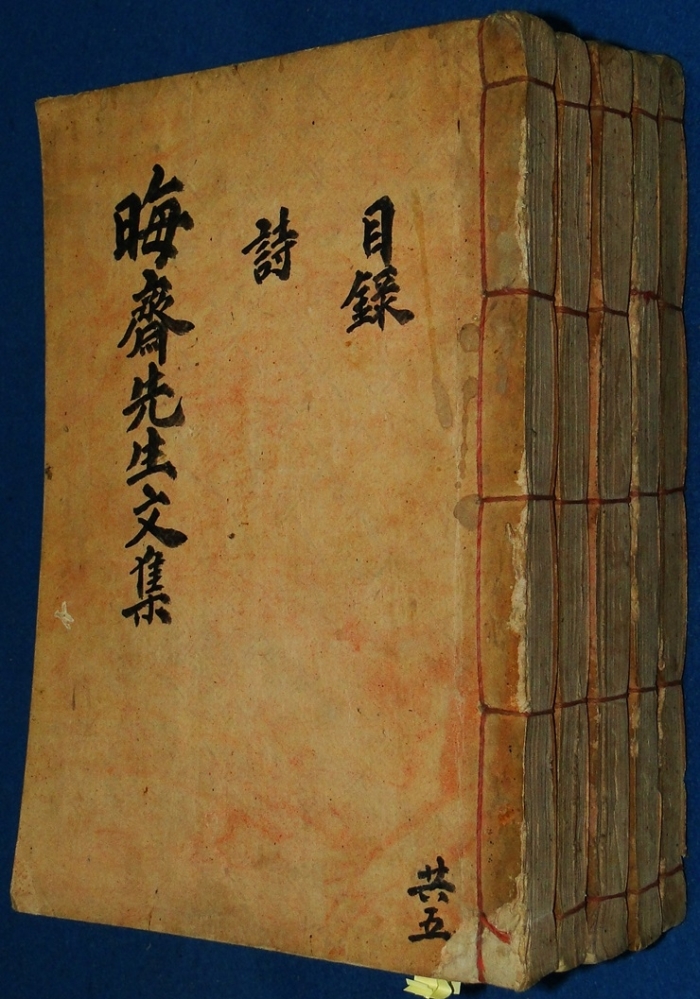 目錄
詩
晦齋先生文集
共五